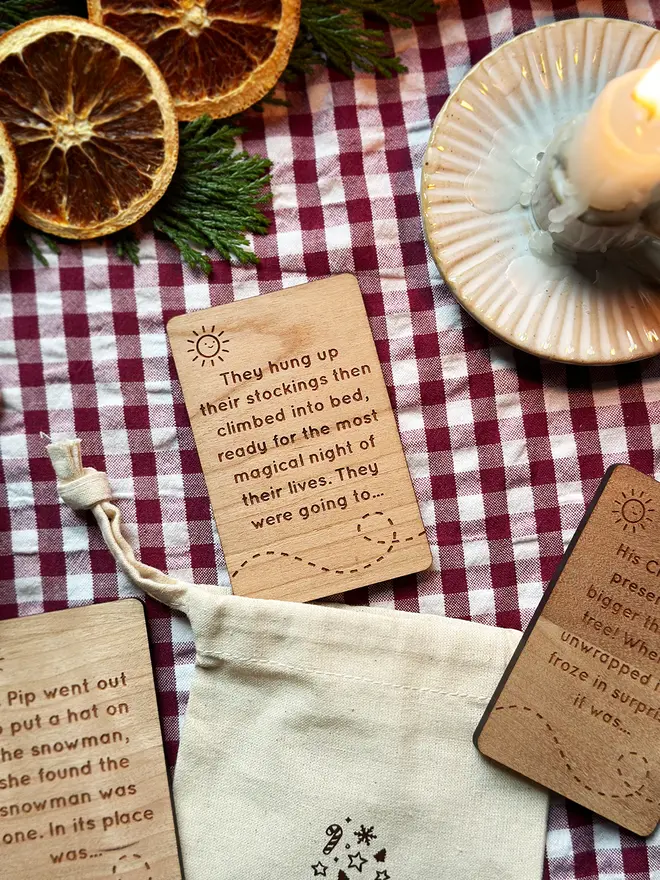 They hung up
their stockings then
climbed into bed,
ready for the most
magical night of
their lives. They
were going to...
Pip went out
put a hat on
snowman,
she found the
snowman was
In its place
was...
His
bigger
tree!
unwrapped
froze in
it was...